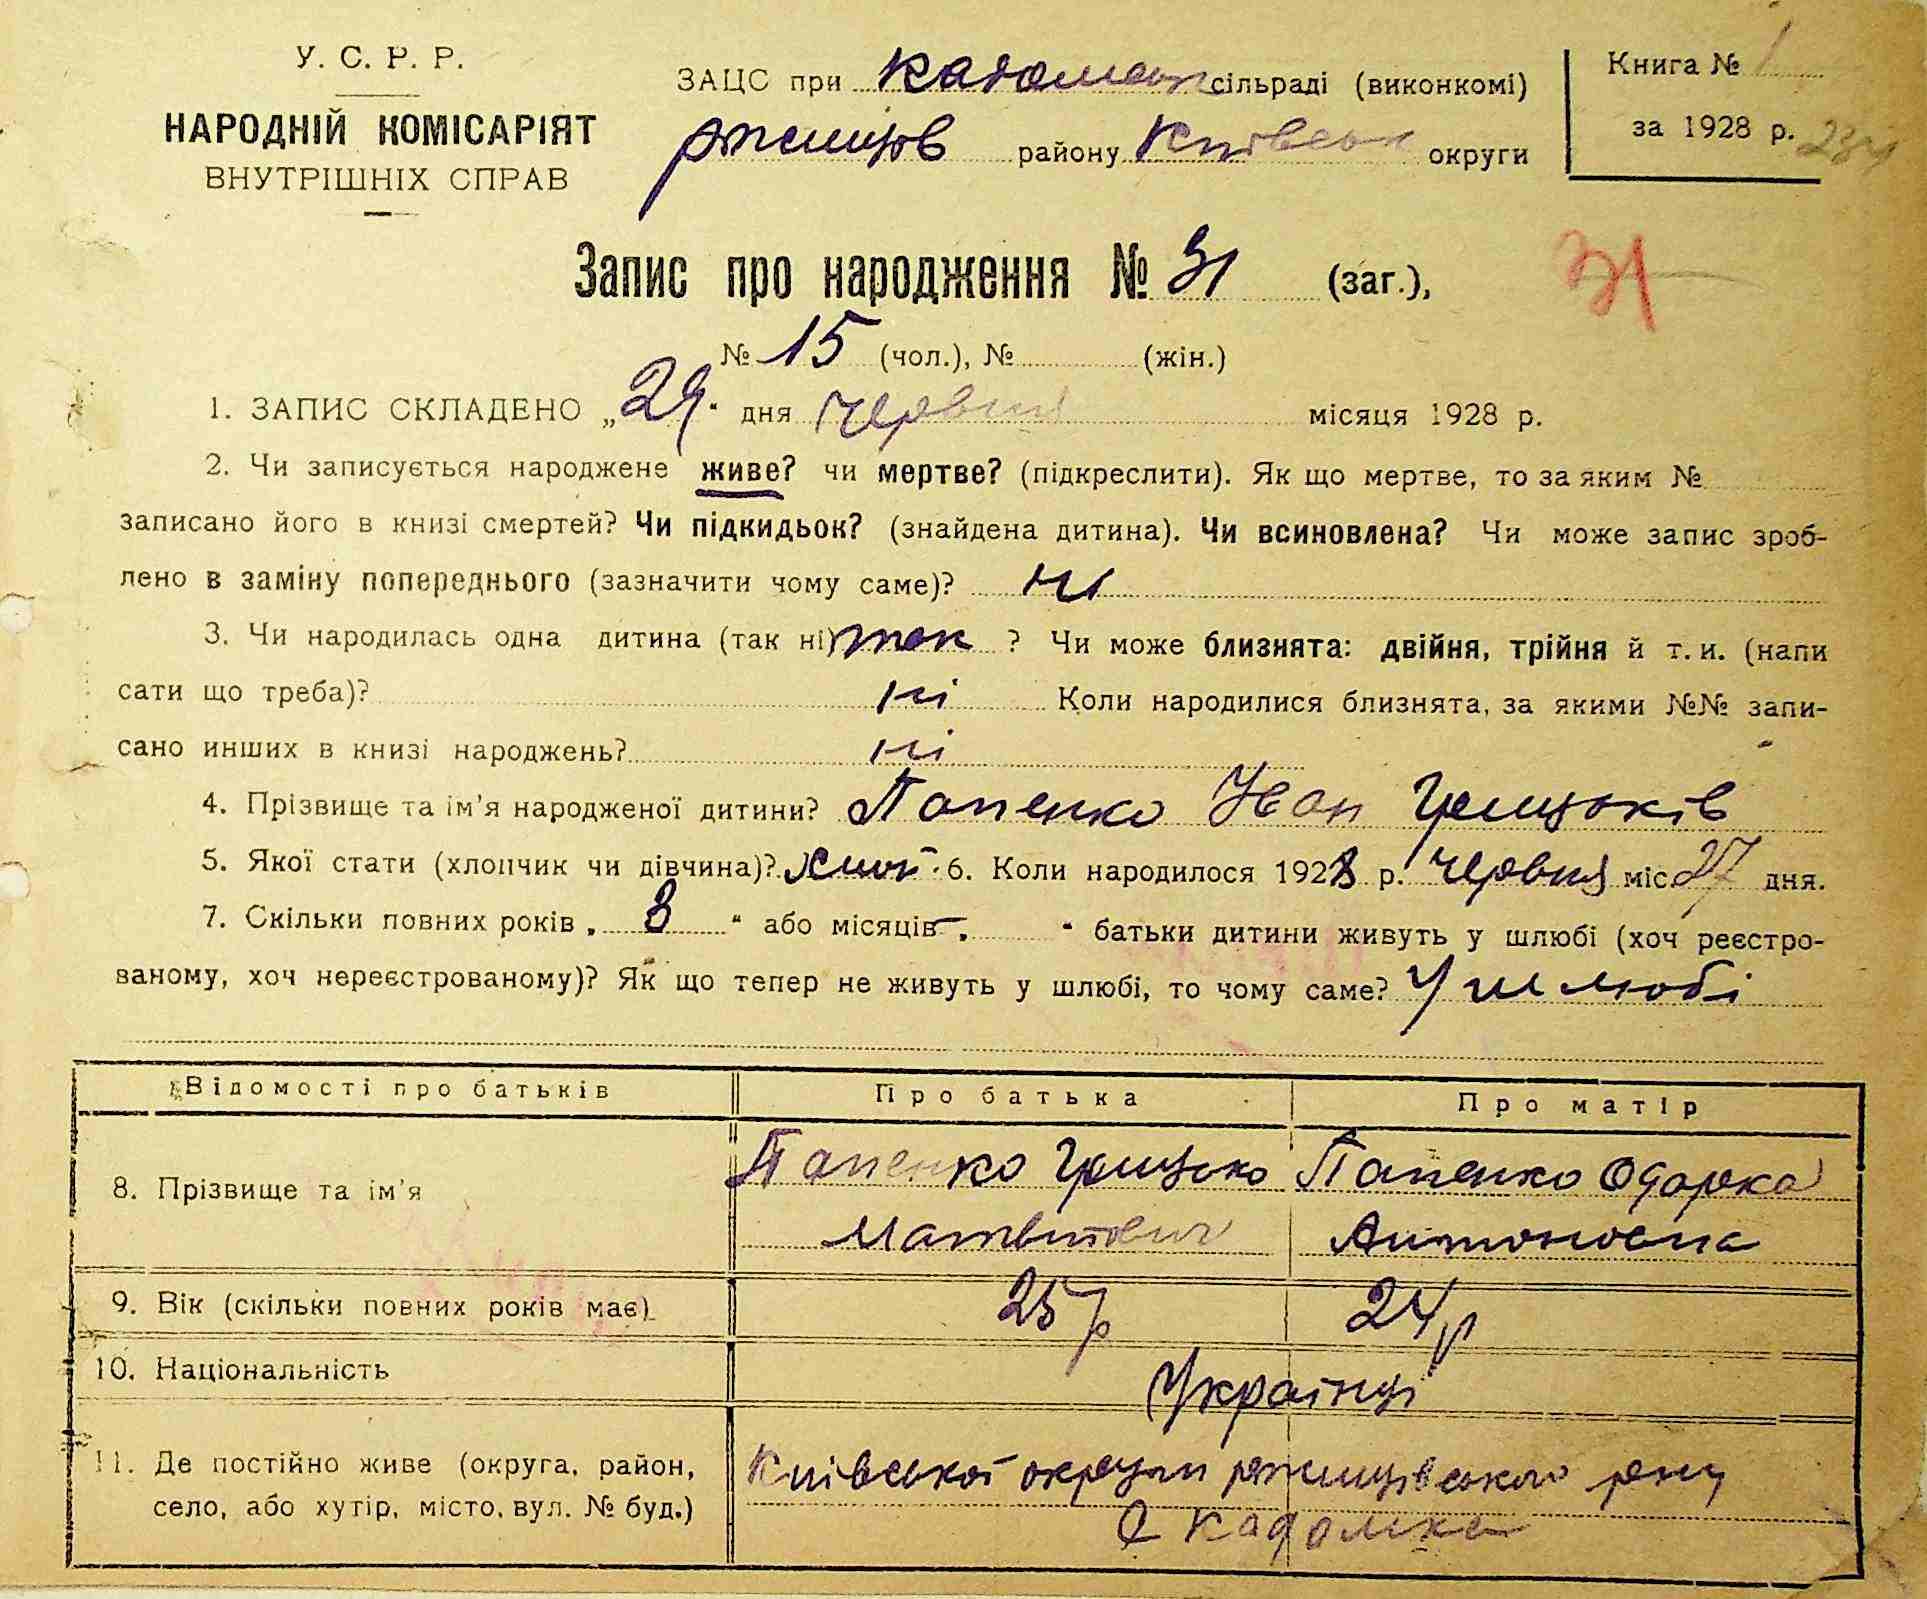 У. С. Р. Р.
НАРОДНІЙ КОМІСАРІЯТ
ВНУТРІШНІХ СПРАВ
ЗАЦС при Кадомськ сільраді (виконкомі)
ржищів району Київськ округи
Книга № 1
за 1928 р.
Запис про народження № 31 (заг.),
31
№ 15 (чол.), № (жін.)
1. ЗАПИС СКЛАДЕНО „29" дня червня місяця 1928 р.
2. Чи записується народжене живе? чи мертве? (підкреслити). Як що мертве, то за яким №
записано його в книзі смертей? Чи підкидьок? (знайдена дитина). Чи всиновлена? Чи може запис зроб-
лено в заміну попереднього (зазначити чому саме)? ні
3. Чи народилась одна дитина (так ні) так ? Чи може близнята: двійня, трійня й т. и. (напи
сати що треба)? ні Коли народилися близнята, за якими №№ запи-
сано инших в книзі народжень? ні
4. Прізвище та ім'я народженої дитини? Папенко Іван Грицьків
5. Якої стати (хлопчик чи дівчина)? хлоп. 6. Коли народилося 1928 р. червня міс. 27 дня.
7. Скільки повних років „ 8 " або місяців „ " батьки дитини живуть у шлюбі (хоч реєстро-
ваному, хоч нереєстрованому)? Як що тепер не живуть у шлюбі, то чому саме? У шлюбі
Відомості про батьків Про батька Про матір
8. Прізвище та ім'я Папенко Грицько Папенко Одарка
Матвійович Антоновна
9. Вік (скільки повних років має) 25 р 24 р
10. Національність Українці
11. Де постійно живе (округа, район, Київської округи ржищівського рну
село, або хутір, місто, вул. № буд.) С Кадомка